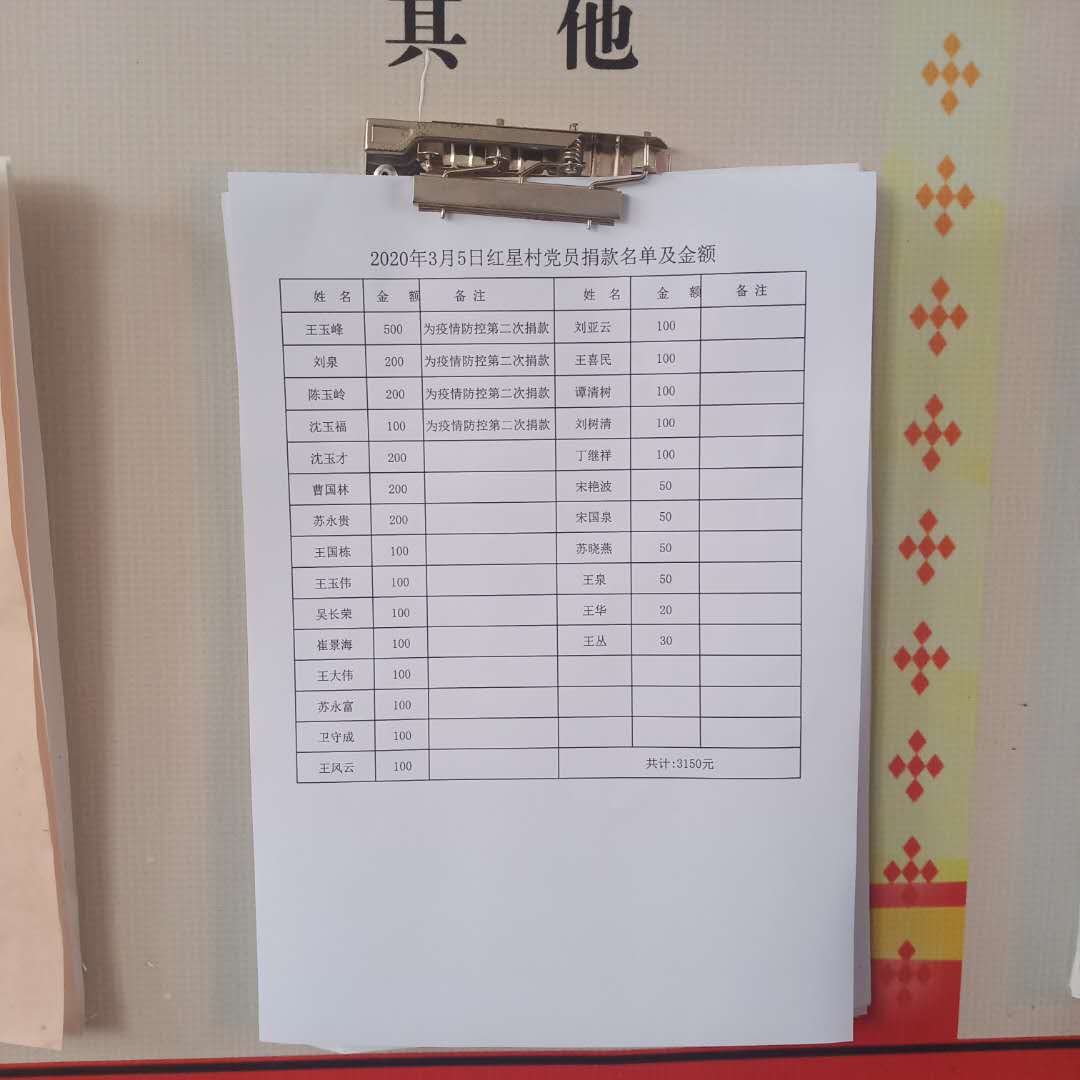 其 他
2020年3月5日红星村党员捐款名单及金额
姓 名 金 额 备 注 姓 名 金 额 备 注
王玉峰 500 为疫情防控第二次捐款 刘亚云 100
刘泉 200 为疫情防控第二次捐款 王喜民 100
陈玉岭 200 为疫情防控第二次捐款 谭清树 100
沈玉福 100 为疫情防控第二次捐款 刘树清 100
沈玉才 200 丁继祥 100
曹国林 200 宋艳波 50
苏永贵 200 宋国泉 50
王国栋 100 苏晓燕 50
王玉伟 100 王泉 50
吴长荣 100 王华 20
崔景海 100 王丛 30
王大伟 100
苏永富 100
卫守成 100
王风云 100 共计:3150元